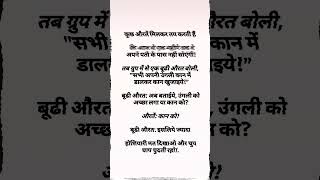 कुछ औरतें मिलकर तय करती हैं
कि आज से एक महीने तक वे
अपने पति के पास नहीं सोएंगी!
तब ग्रुप में से एक बूढी औरत बोली,
"सभी अपनी उंगली कान में
डालकर कान खुजाइये!"
बूढी औरत: अब बताईये, उंगली को
अच्छा लगा या कान को?
औरतें: कान को!
बूढी औरत: इसलिये ज्यादा
होशियारी मत दिखाओ और चुप
चाप चुदती रहो!.